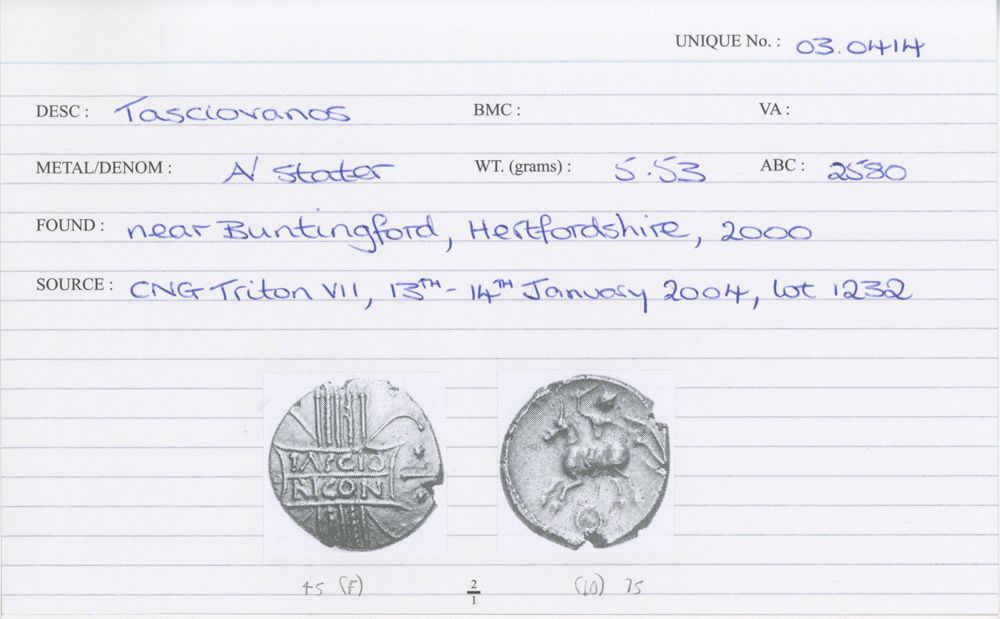 UNIQUE No. : 03.0414
DESC : Tasciovanos BMC : VA :
METAL/DENOM : N stater WT. (grams) : 5.53 ABC : 2580
FOUND : near Buntingford, Hertfordshire, 2000
SOURCE : CNG Triton VII, 13TH - 14TH January 2004, lot 1232
TASCIO
RICON
45 (F) 2/1 (10) 75